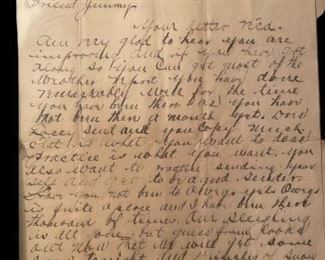 Friend Jimmy
Your letter Rcd.
Am very glad to hear you are
improving and if you have got
along so you can get most of the
Weather report you have done
remarkably well for the time
you have been there as you have
not been there a month yet.
send and you copy much
that is what you want to do
Practice is what you want. You
also want to practice sending your
self and get to be a good sender.
you not been to Owego yet. Owego
is quite a place and I have been there
thousand of times. Our sleighing
is all gone but guess from looks
out now that we will get some